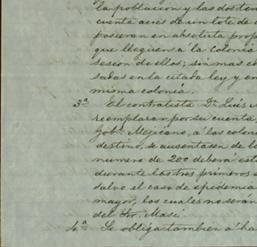 la poblacion y las dos ter
cuenta acres de un lote de
posieran en absoluta prop
que lleguen à la colonia
sesion de ellos; sin mas co
sadas en la citada ley y en
misma colonia.
3ª El contratista Dⁿ Luis
reemplazar por su cuenta
Gobº Mejicano, à los colon
destino, se ausentasen de l
numero de 200 deberá esta
durante los tres primeros a
salvo el caso de epidemia
mayor, los cuales no serán
del Sor. Masi
4ª Se obliga tambien á ha